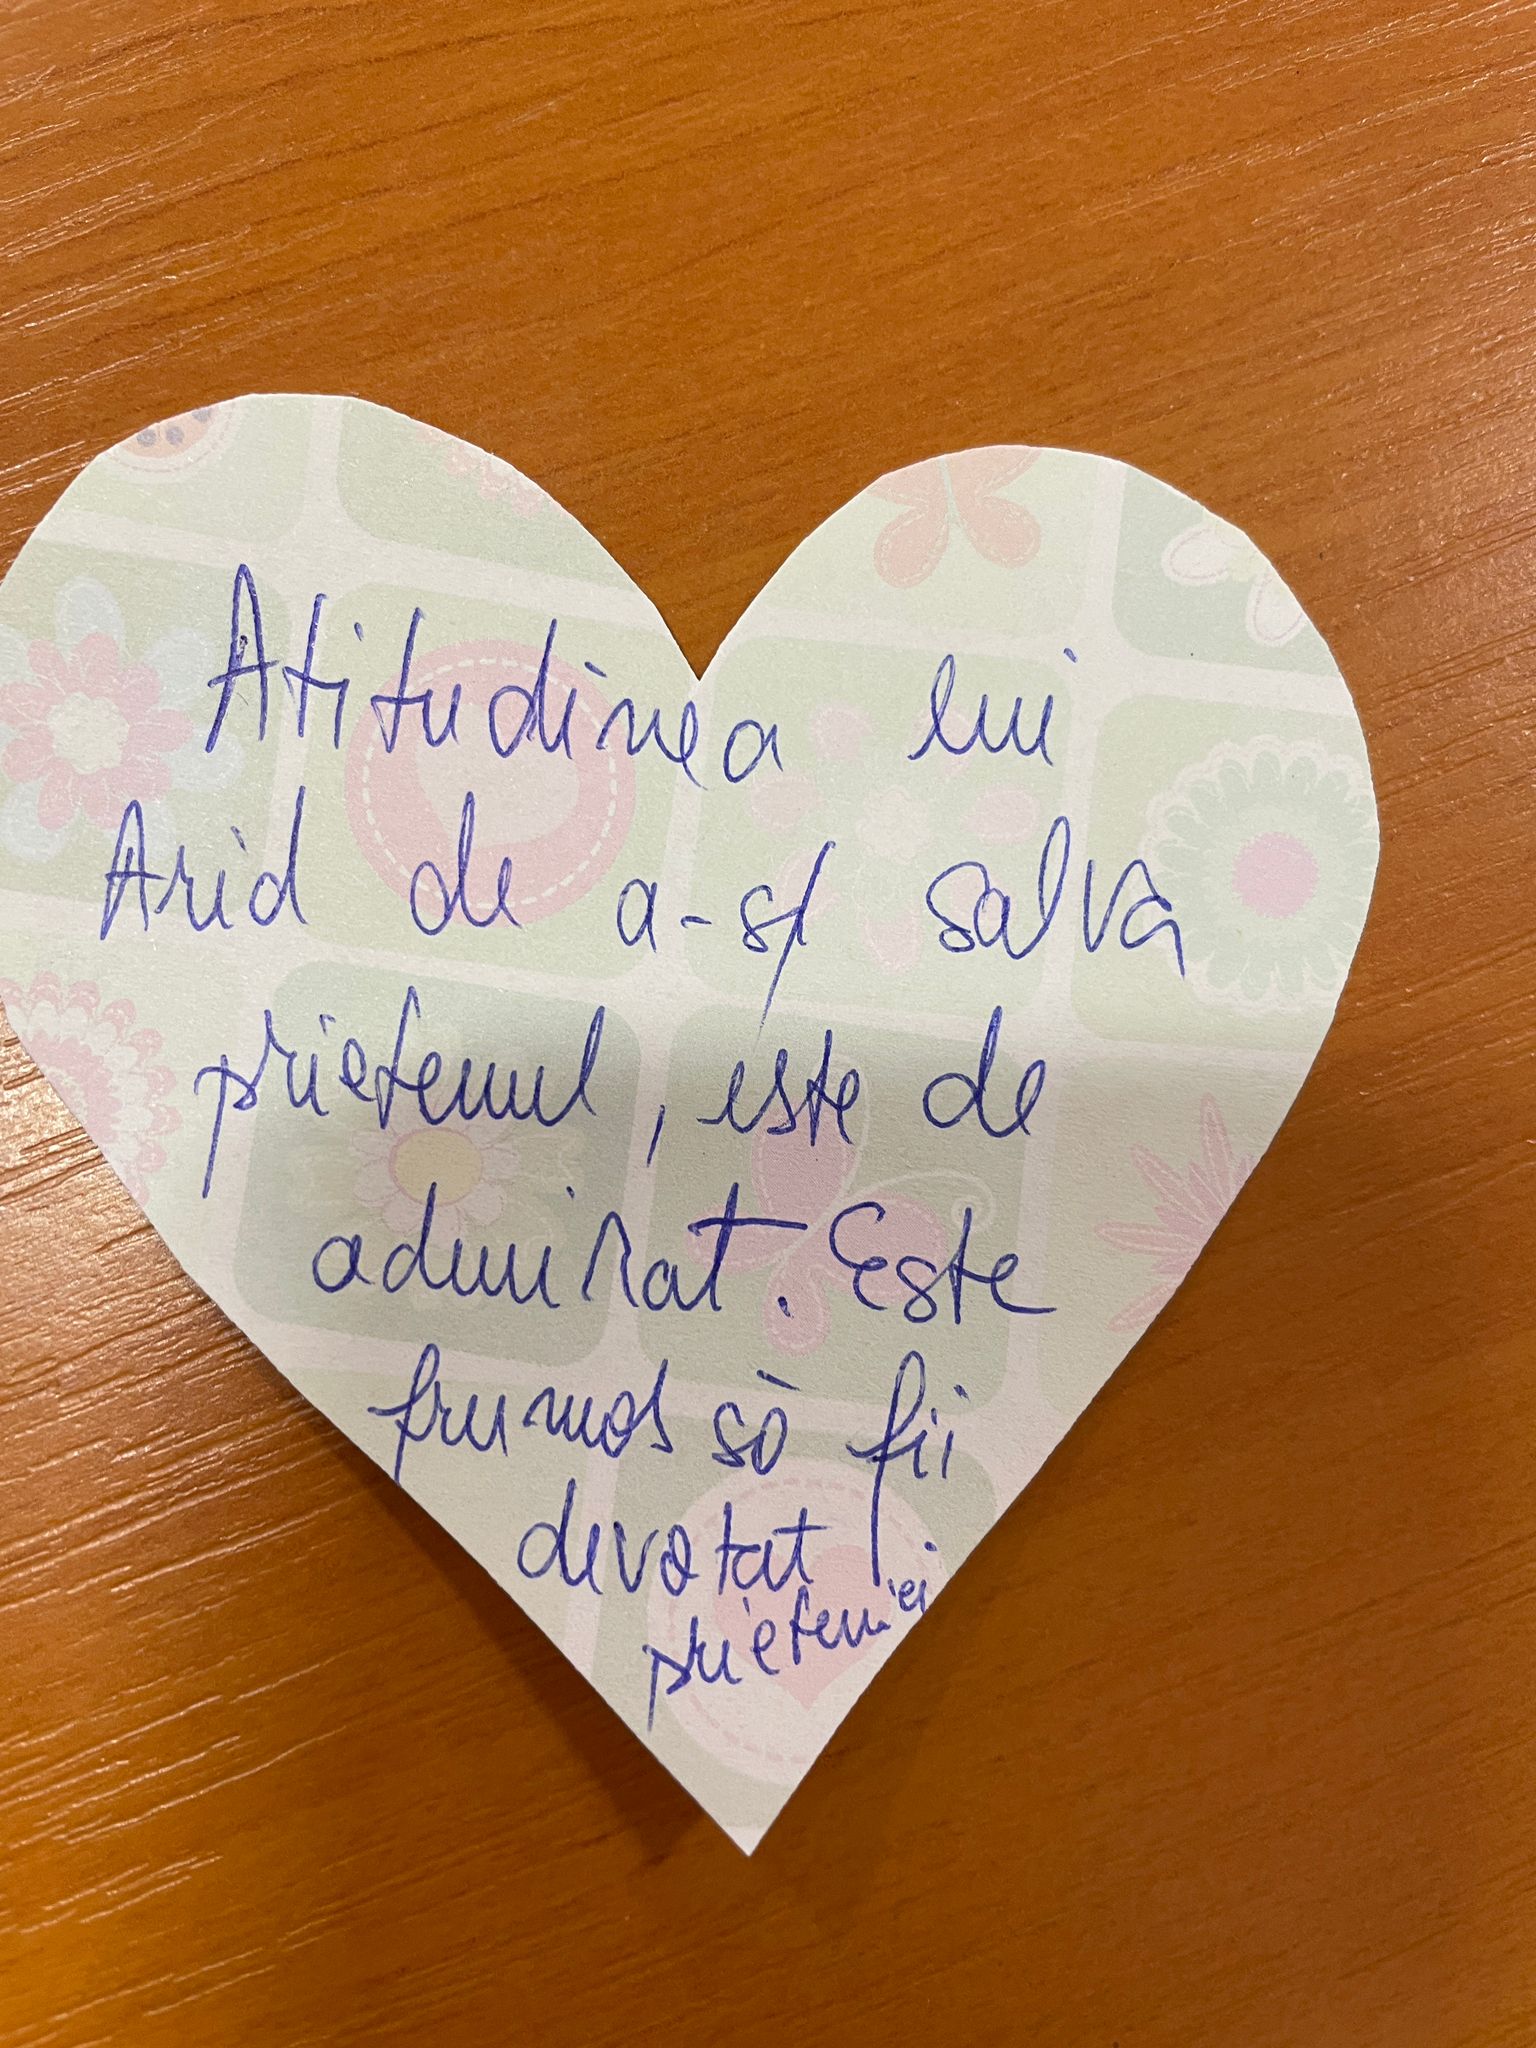 Atitudinea lui
Arid de a-și salva
prietenul, este de
admirat. Este
frumos să fii
devotat
prieteniei